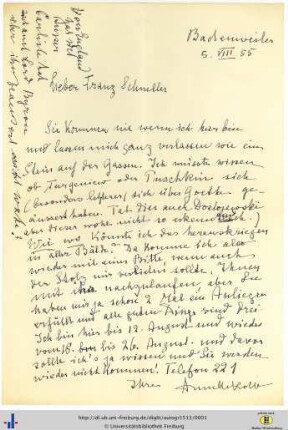 Badenweiler
5. VIII 55
Lieber Franz Schneller
Sie kommen nie wenn ich hier bin
und lassen mich ganz verlassen wie ein
Stein auf der Gassen. Ich müsste wissen
ob Turgenew oder Puschkin sich
(besonders letzterer) sich über Goethe ge-
äussert haben. Tat dies auch Dostojewski
aber dieser wohl nicht so
Wie wo könnte ich das herauskriegen
in aller Bälde? Da komme ich also
wieder mit einer Bitte, wenn auch
der Stolz mir verbieten sollte, Ihnen
mit nachzulaufen, aber Sie
haben mir ja schon 2 Mal ein Anliegen
erfüllt und alle guten Dinge sind drei
Ich bin hier bis 12. August und wieder
vom 18. bis 26. August. und davor
sollte ich's ja wissen und Sie werden
wieder nicht kommen! Telefon 221
Ihre Annette Kolb
Von England
hat
Carlisle hat
und Lord Byron
über ihn
http://dl.ub.uni-freiburg.de/diglit/autogr1513/0001
© Universitätsbibliothek Freiburg